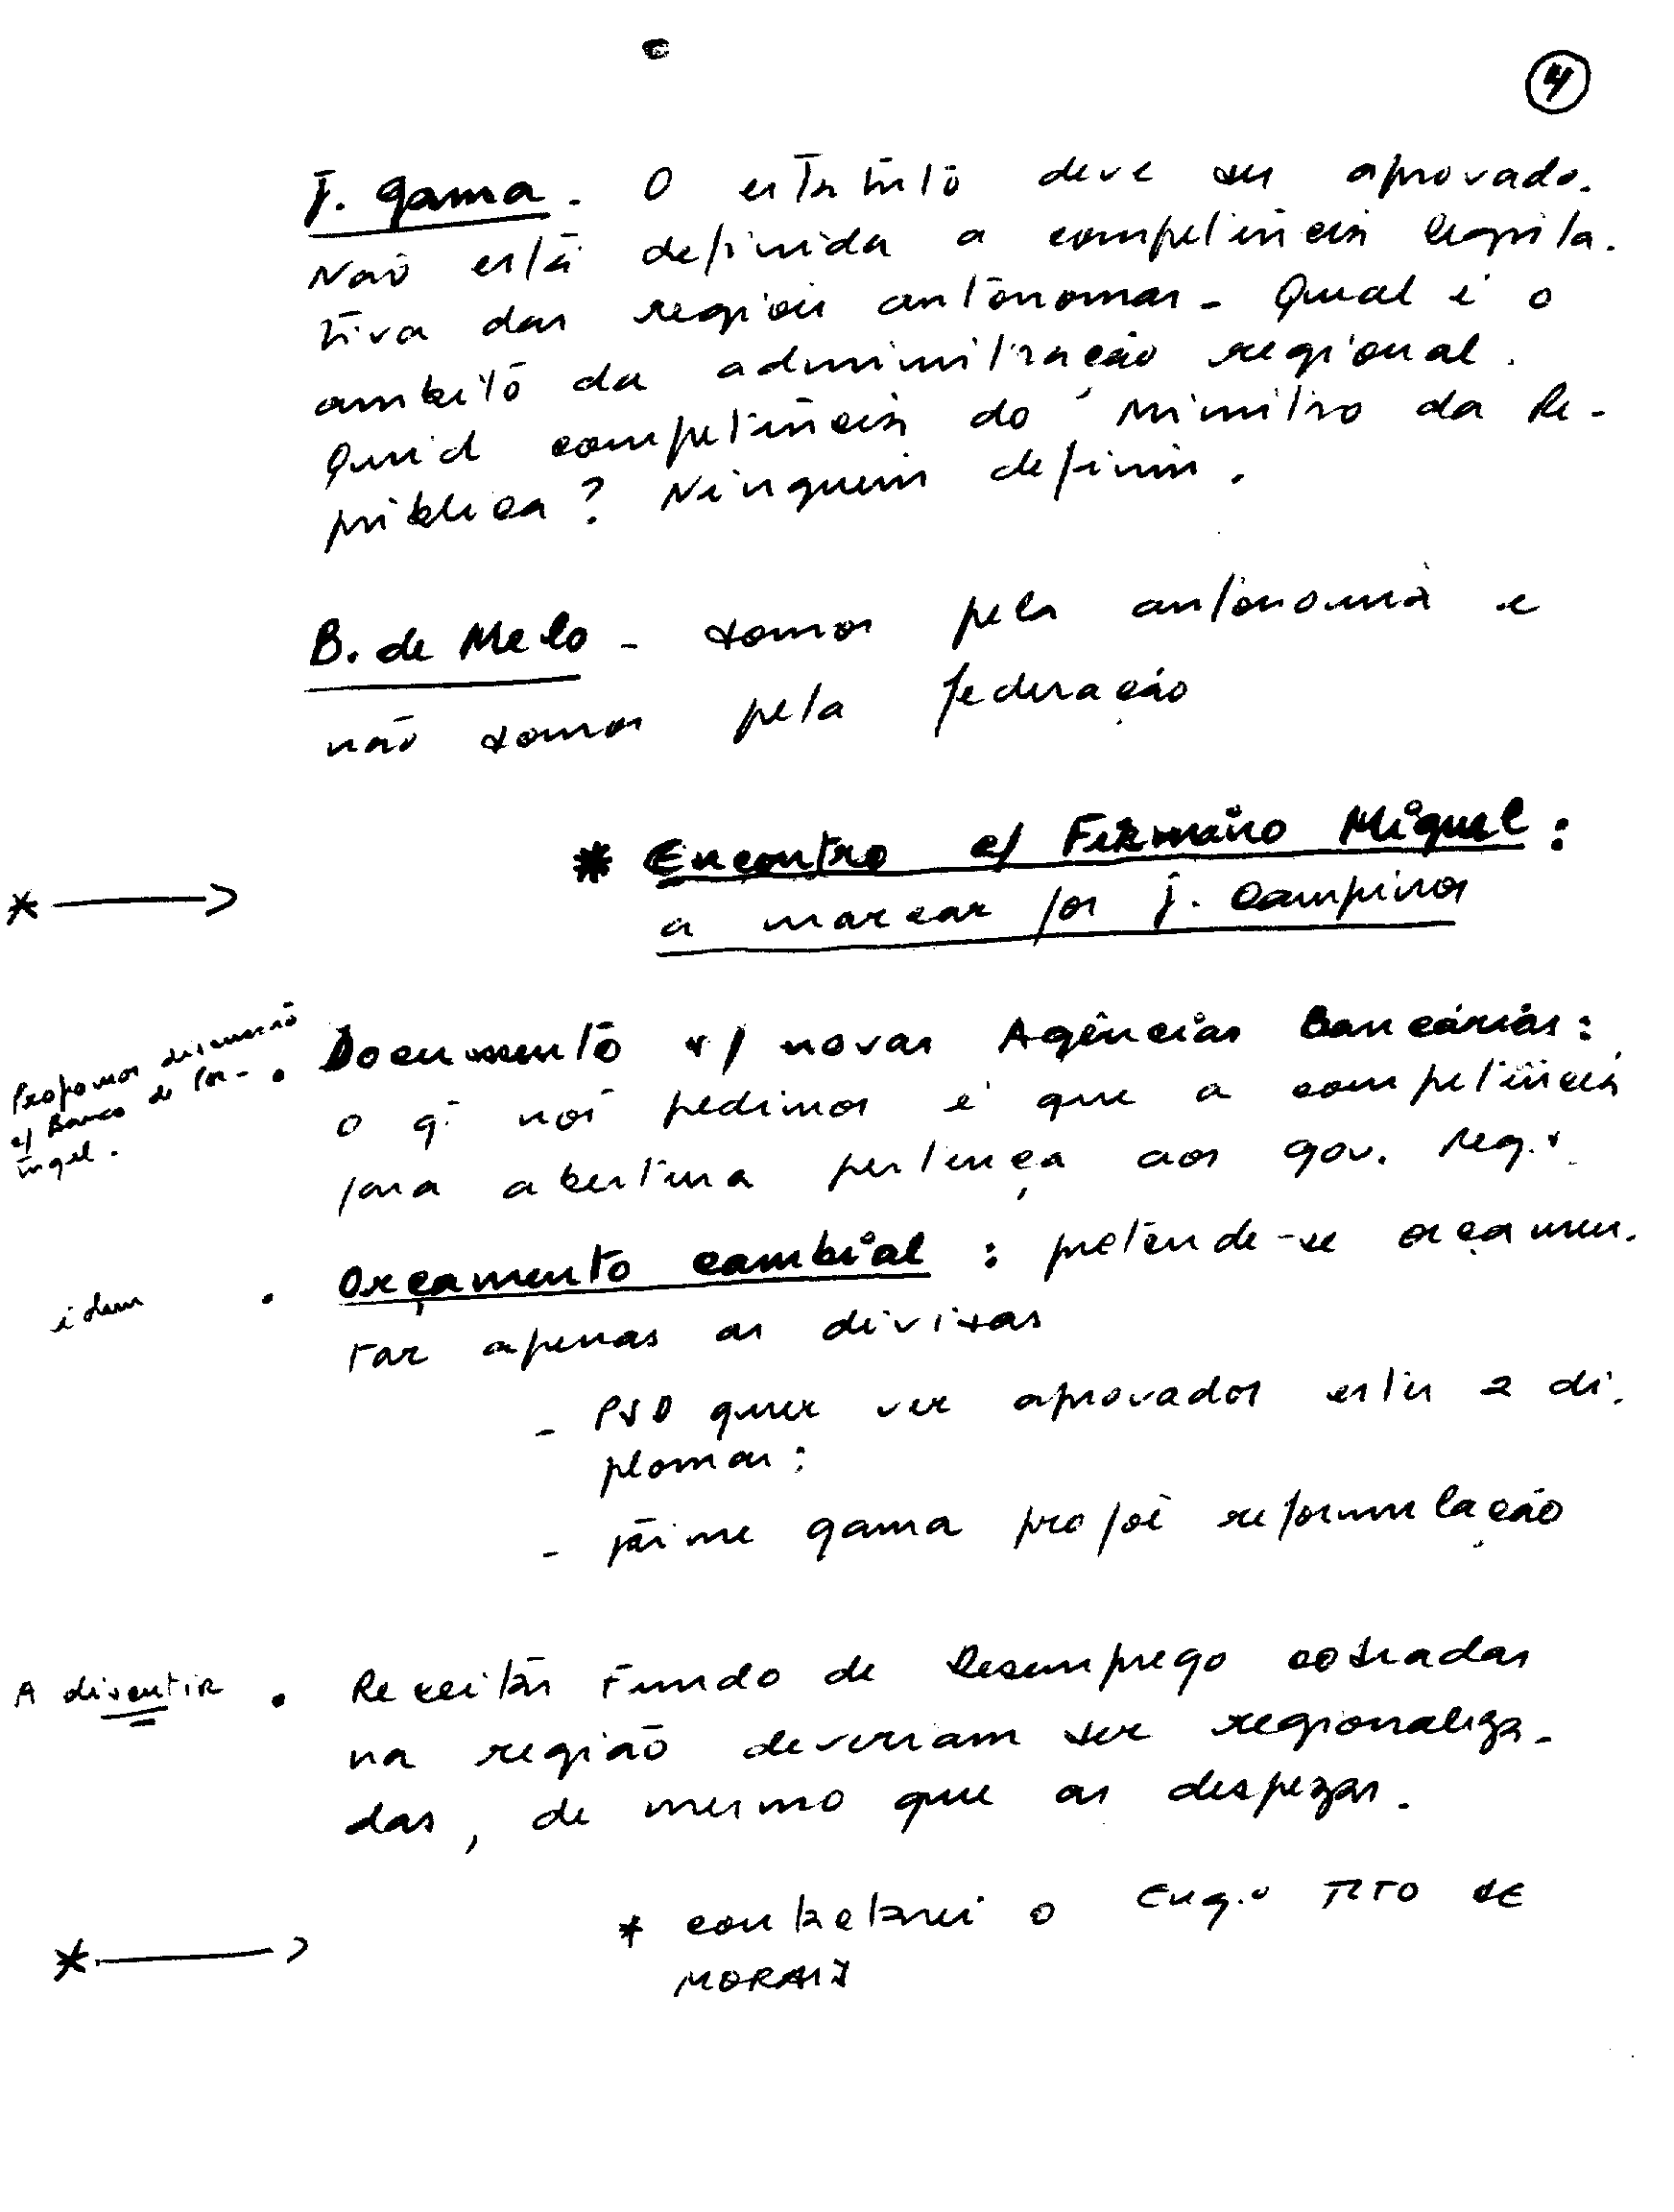 4
J. Gama - O estatuto deve ser aprovado.
Não está definida a competência legisla-
tiva das regiões autónomas - Qual é o
ambito da administração regional.
Quid competência do Ministro da Re-
pública? Ninguem definiu.
B. de Melo - somos pela autonomia e
não somos pela federação
* Encontro c/ Firmino Miguel:
a marcar por J. Campinos
Propomos discussão
c/ Banco de Por-
tugal.
. Documento s/ novas Agências Bancárias:
o q. nós pedimos é que a competência
para abertura pertença aos gov. reg.s
idem
. Orçamento cambial: pretende-se orçamen-
tar apenas as divisas
- PSD quer ver aprovados estes 2 di-
plomas;
- Jaime Gama propõe reformulação
A discutir
. Receitas Fundo de Desemprego cobradas
na região deveriam ser regionaliza-
das, de mesmo que as despezas.
* contactarei o Eng.o TITO DE
MORAIS